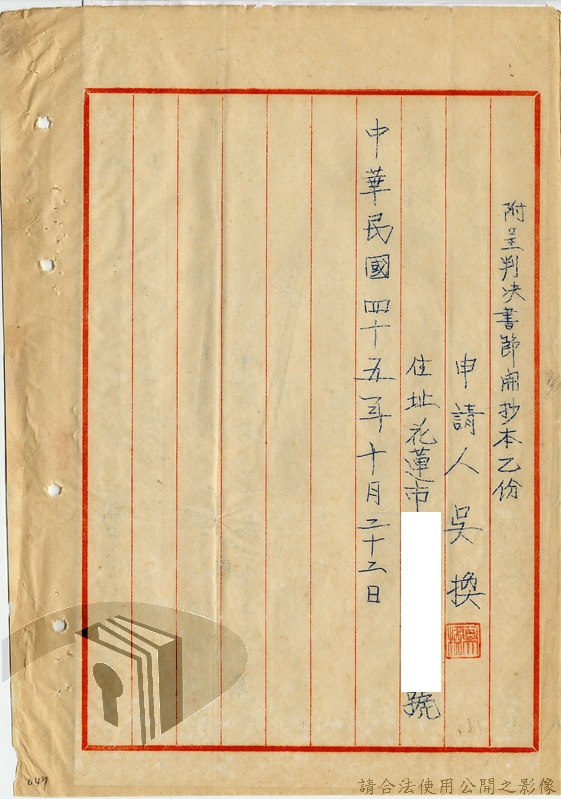 附呈判決書節本抄本乙份
申請人 吳換
住址花蓮市
號
中華民國四十五年十月二十二日
047
請合法使用公開之影像